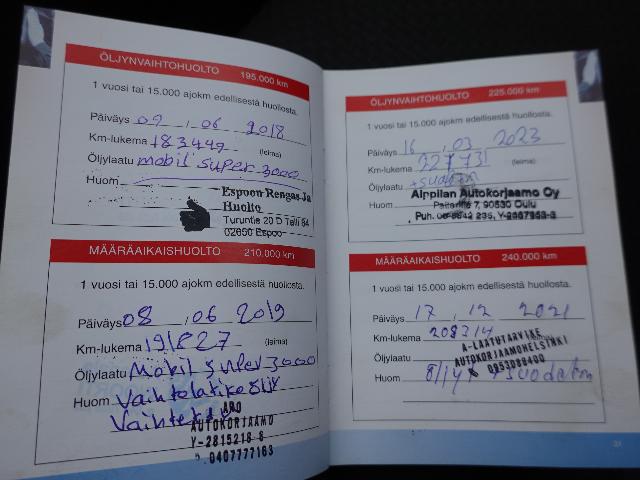 ÖLJYNVAIHTOHUOLTO 195.000 km
1 vuosi tai 15.000 ajokm edellisestä huollosta.
Päiväys 07 . 06 2018
Km-lukema 183449 (leima)
Öljylaatu mobil super 3000
Huom
Espoon Rengas Ja
Huolto
Turuntie 20 D Talli 54
02650 Espoo
MÄÄRÄAIKAISHUOLTO 210.000 km
1 vuosi tai 15.000 ajokm edellisestä huollosta.
Päiväys 08 . 06 2019
Km-lukema 191827 (leima)
Öljylaatu Mobil super 3000
Huom Vaihtolatikoöljy
Vaihtettu
ARO
AUTOKORJAAMO
Y-2815218-6
0407777163
ÖLJYNVAIHTOHUOLTO 225.000 km
1 vuosi tai 15.000 ajokm edellisestä huollosta.
Päiväys 16 . 03 2023
Km-lukema 227731 (leima)
Öljylaatu +suodatin
Huom
Alppilan Autokorjaamo Oy
90530 Oulu
Puh.
MÄÄRÄAIKAISHUOLTO 240.000 km
1 vuosi tai 15.000 ajokm edellisestä huollosta.
Päiväys 17 . 12 2021
Km-lukema 208314 (leima)
Öljylaatu
A-LAATUTARVIKE
AUTOKORJAAMOHELSINKI
0953088400
Huom öljyt + suodatin
31